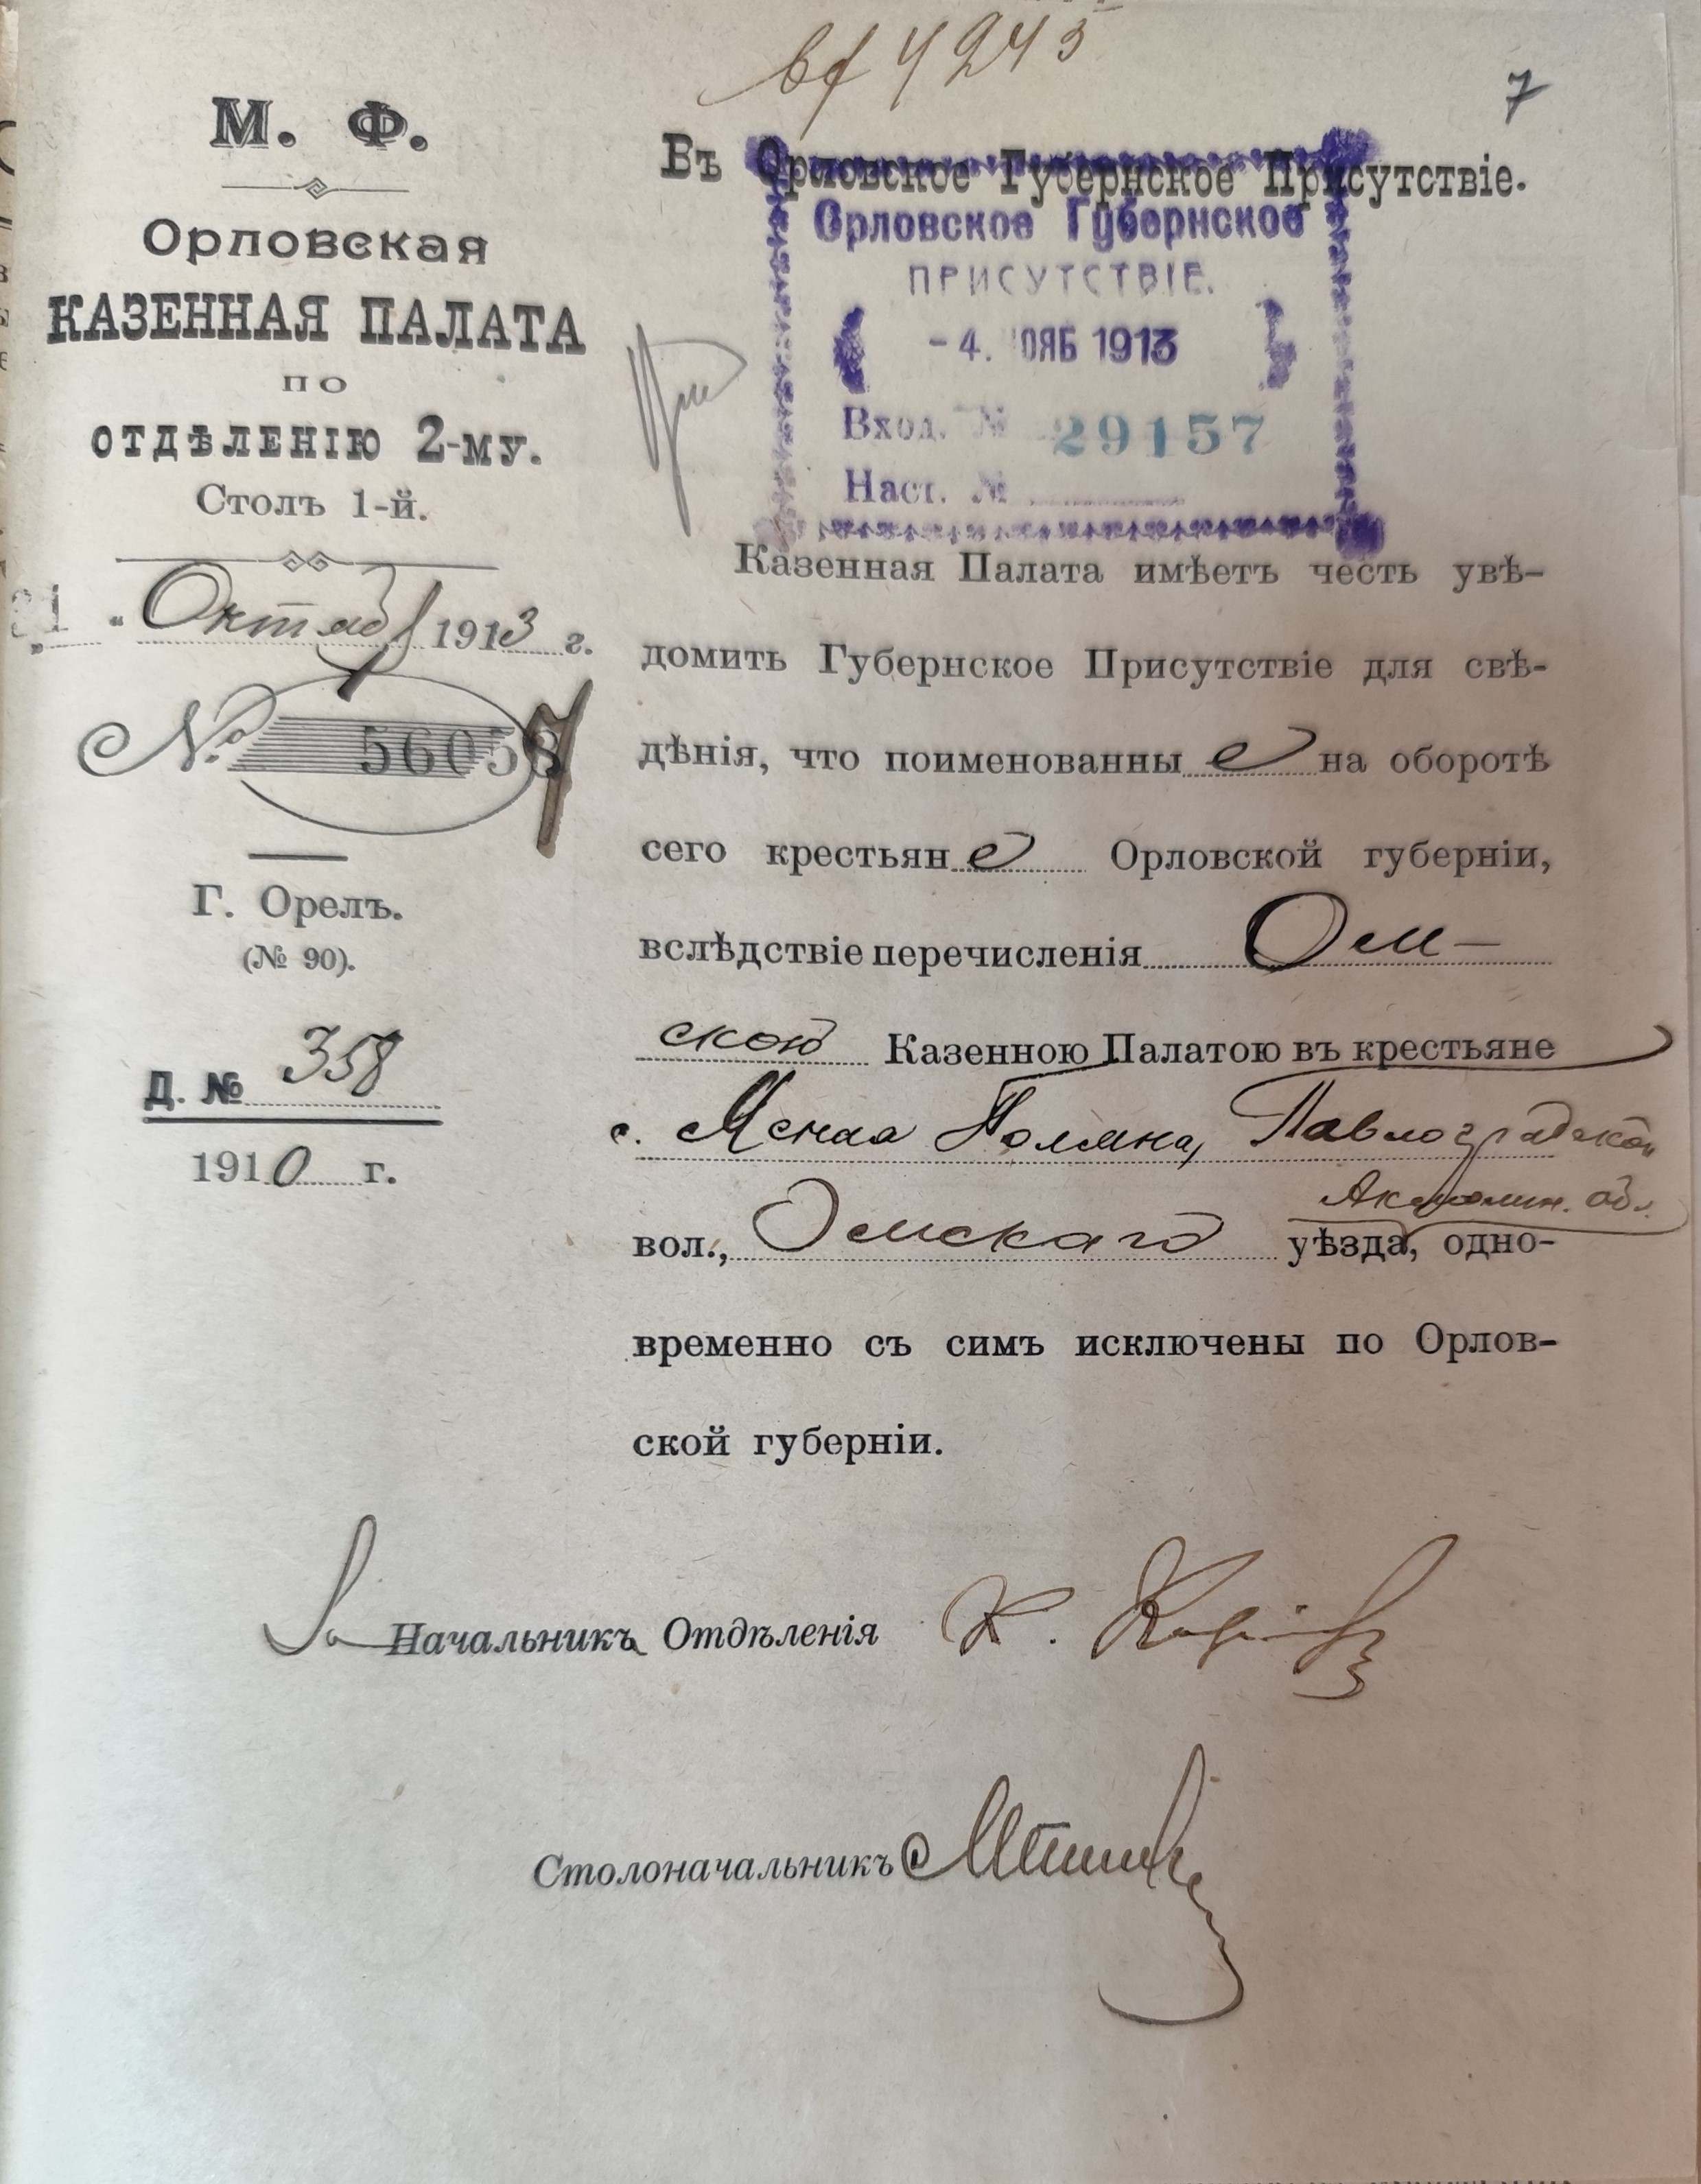 4245
7
М. Ф.
Орловская
КАЗЕННАЯ ПАЛАТА
по
ОТДѢЛЕНІЮ 2-му.
Столъ 1-й.
31 " Октяб 1913 г.
№ 56057
Г. Орелъ.
(№ 90).
Д. № 358
1910 г.
Въ Орловское Губернское Присутствіе.
Орловское Губернское
ПРИСУТСТВІЕ.
- 4. НОЯБ 1913
Вход. № 29157
Наст. №
Казенная Палата имѣетъ честь увѣ-
домить Губернское Присутствіе для свѣ-
дѣнія, что поименованны е на оборотѣ
сего крестьян е Орловской губерніи,
вслѣдствіе перечисленія Ом-
скою Казенною Палатою въ крестьяне
с. Ясная Поляна, Павлоградской
Акмолин. обл.
вол., Омскаго уѣзда, одно-
временно съ симъ исключены по Орлов-
ской губерніи.
За Начальника Отдѣленія К.
Столоначальникъ